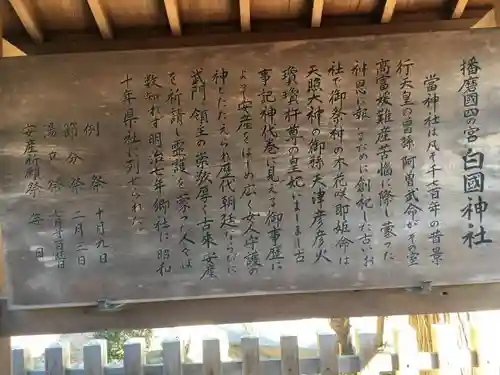 播磨國四の宮 白國神社
當神社は凡そ千六百年の昔景
行天皇の皇孫阿曽武命がその室
高富媛難産苦悩に際し蒙った
神思に報いるために創祀した古いお
社で御祭神の木花咲耶姫命は
天照大神の御孫天津彦彦火
瓊瓊杵尊の皇妃にましまし古
事記神代巻に見える御事歴に
より安産をはじめ広く女人守護の
神とたたえられ歴代朝廷ならびに
武門領主の崇敬厚く古来安産
を祈請し霊護を蒙った人々は
数知れず明治七年郷社に昭和
十年県社に列せられた
例祭 十月九日
節分祭 二月三日
湯口祭
安産祈願祭 毎日